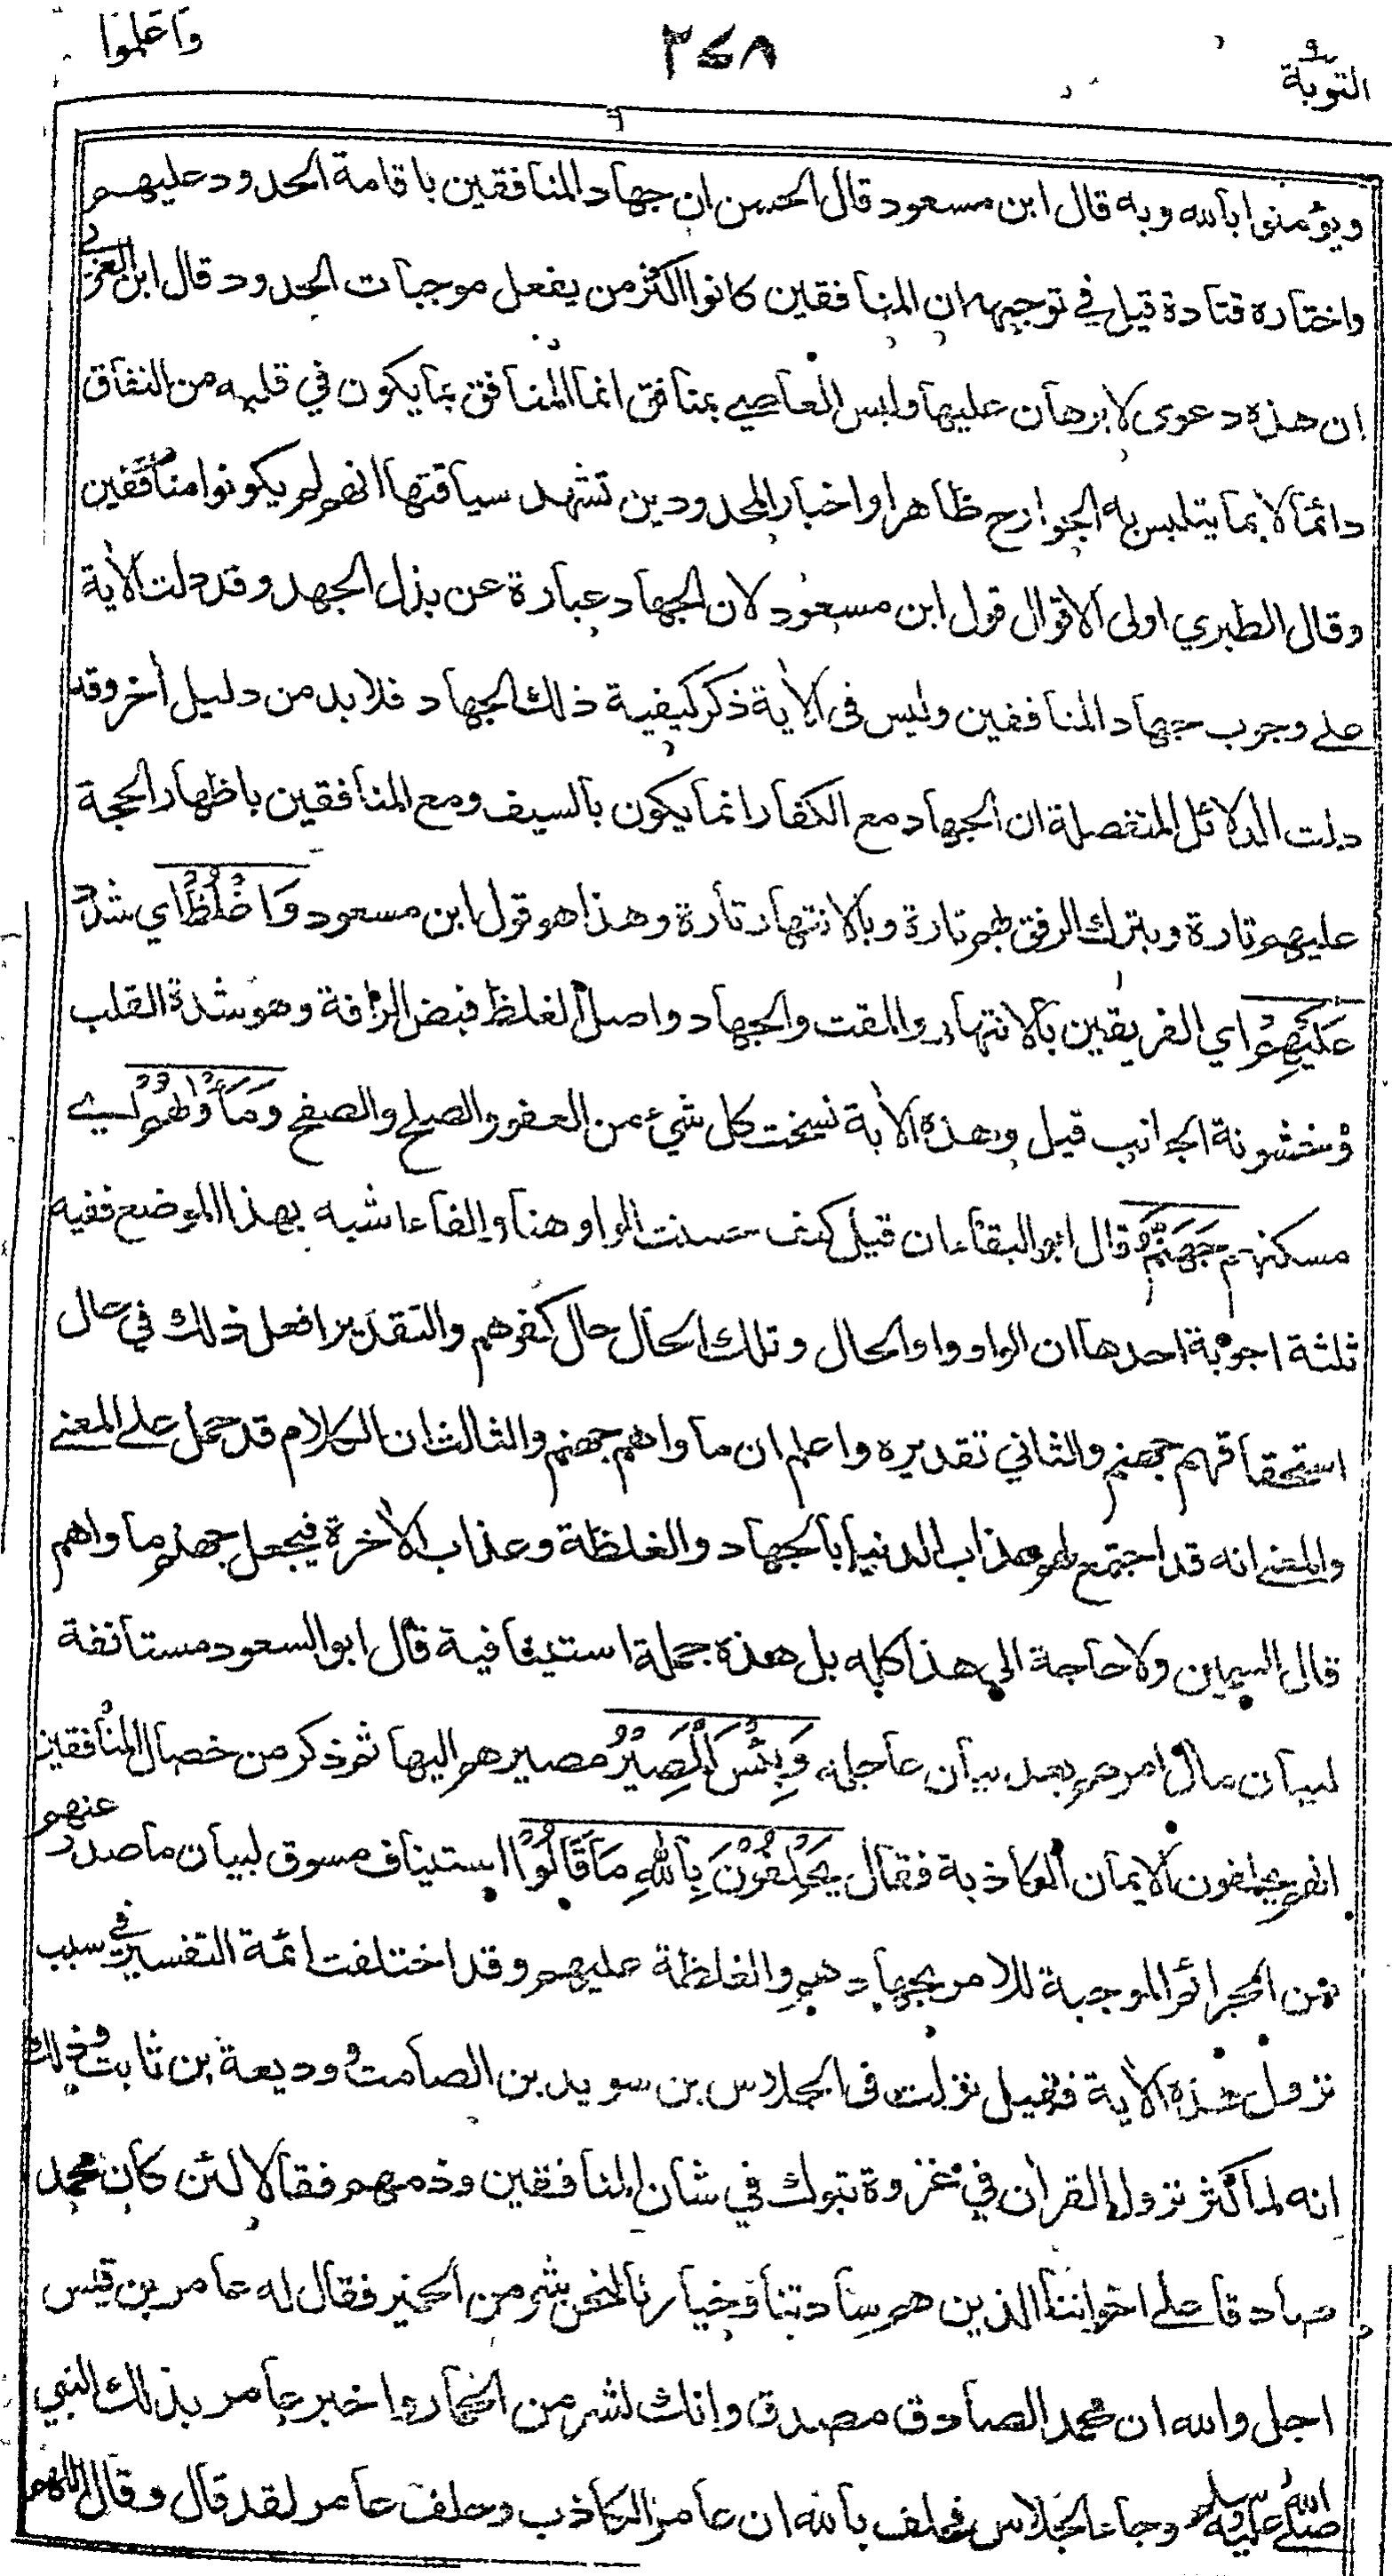 التوبة ٩
٣٧٨
واعلموا
ويؤمنوا بالله وبه قال ابن مسعود قال الحسن ان جهاد المنافقين باقامة الحدود عليهم
واختاره قتادة قيل في توجيهه ان المنافقين كانوا اكثر من يفعل موجبات الحدود قال ابن العربي
ان هذه دعوى لا برهان عليها وليس العاصي بمنافق انما المنافق بما يكون في قلبه من النفاق
دائما لا بما يتلبس به الجوارح ظاهرا واخبار المحدودين تشهد سياقتها انهم لم يكونوا منافقين
وقال الطبري اولى الاقوال قول ابن مسعود لان الجهاد عبارة عن بذل الجهد وقد دلت الأية
على وجوب جهاد المنافقين وليس فى الأية ذكر كيفية ذلك الجهاد فلا بد من دليل أخر وقد
دلت الدلائل المنفصلة ان الجهاد مع الكفار انما يكون بالسيف ومع المنافقين باظهار الحجة
عليهم تارة وبترك الرفق بهم تارة وبالانتهار تارة وهذا هو قول ابن مسعود وَاغْلُظْ اي شدّد
عَلَيْهِمْ اي الفريقين بالانتهار والمقت والجهاد واصل الغلظ نقيض الرافة وهو شدة القلب
وخشونة الجانب قيل وهذه الأية نسخت كل شيء من العفو والصلح والصفح وَمَأْوٰىهُمْ اي
مسكنهم جَهَنَّمُ قال ابو البقاء ان قيل كيف حسنت الواو هنا والفاء اشبه بهذا الموضع ففيه
ثلثة اجوبة احدها ان الواو واو الحال وتلك الحال حال كفرهم والتقدير افعل ذلك في حال
استحقاقهم جهنم والثاني تقديره واعلم ان ماواهم جهنم والثالث ان الكلام قد حمل على المعنى
والمعنى انه قد اجتمع لهم عذاب الدنيا بالجهاد والغلظة وعذاب الأخرة فيجعل جهنم ماواهم
قال السمين ولا حاجة الى هذا كله بل هذه جملة استينافية قال ابو السعود مستانفة
لبيان مأل امرهم بعد بيان عاجله وَبِئْسَ الْمَصِيْرُ مصيرهم اليها ثم ذكر من خصال المنافقين
انهم يحلفون الايمان الكاذبة فقال يَحْلِفُوْنَ بِاللهِ مَا قَالُوْا استيناف مسوق لبيان ما صدر عنهم
من الجرائم الموجبة للامر بجهادهم والغلظة عليهم وقد اختلفت ائمة التفسير في سبب
نزول هذه الأية فقيل نزلت فى الجلاس بن سويد بن الصامت ووديعة بن ثابت وذلك
انه لما كثر نزول القرأن في غزوة تبوك في شان المنافقين وذمهم فقالا لئن كان محمد
صادقا على اخواننا الذين هم ساداتنا وخيارنا لنحن شر من الحمير فقال له عامر بن قيس
اجل والله ان محمد الصادق مصدق وانك لشر من الحمار واخبر عامر بذلك النبي
صلى الله عليه وسلم وجاء الجلاس فحلف بالله ان عامرا لكاذب وحلف عامر لقد قال وقال اللهم